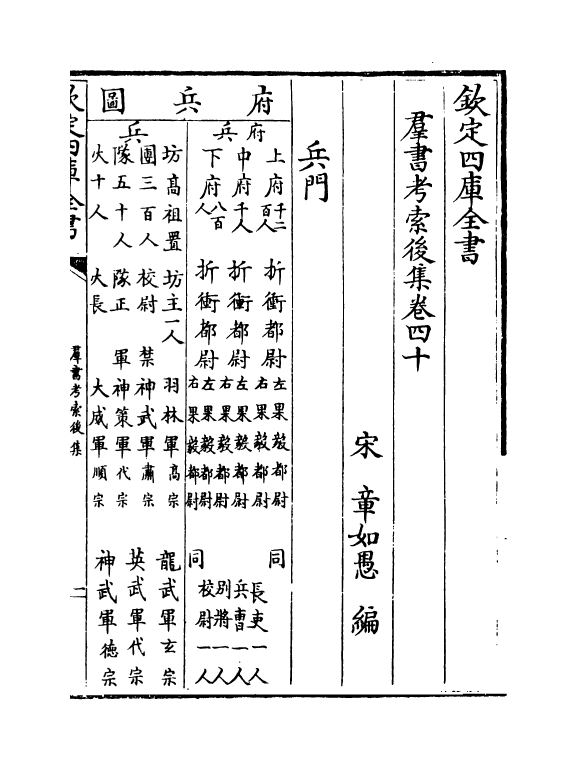 欽定四庫全書
羣書考索後集卷四十
宋 章如愚 編
兵門
府兵圖
府兵
上府千二百人 折衝都尉 左果毅都尉 右果毅都尉 同 長吏一人
中府千人 折衝都尉 左果毅都尉 右果毅都尉 兵曹一人 別將一人
下府八百人 折衝都尉 左果毅都尉 右果毅都尉 同 校尉一人
兵
坊高祖置 坊主一人 羽林軍高宗 龍武軍玄宗
團三百人 校尉 禁神武軍肅宗 英武軍代宗
隊五十人 隊正 軍神策軍代宗 神武軍德宗
火十人 火長 大威軍順宗
欽定四庫全書
羣書考索後集